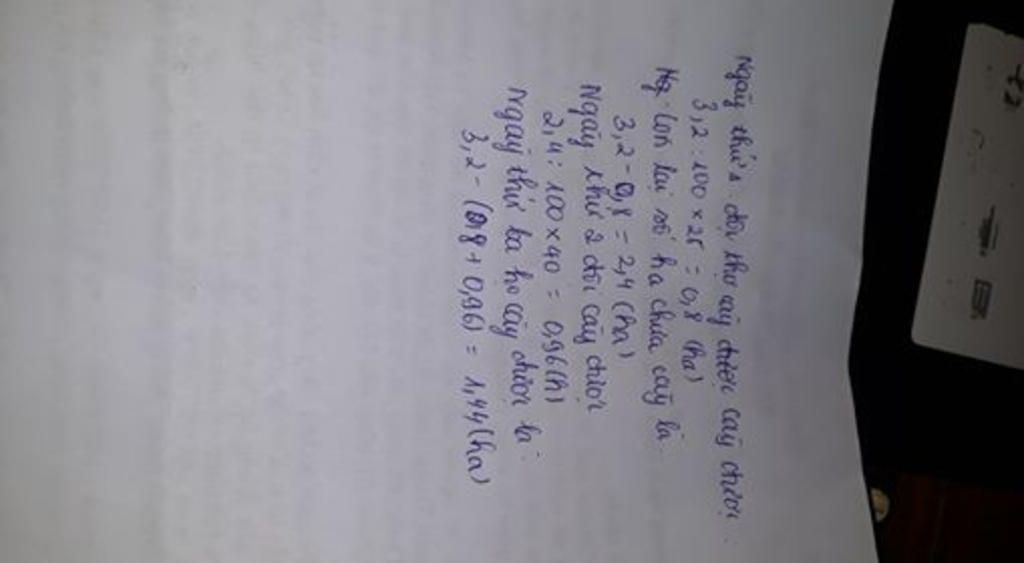 Ngày thứ 1 đội thợ cày được cày được:
3,2 : 100 × 25 = 0,8 (ha)
Còn lại số ha chưa cày là
3,2 - 0,8 = 2,4 (ha)
Ngày thứ 2 đội cày được
2,4 : 100 × 40 = 0,96 (h)
Ngày thứ ba họ cày được là
3,2 - (0,8 + 0,96) = 1,44 (ha)